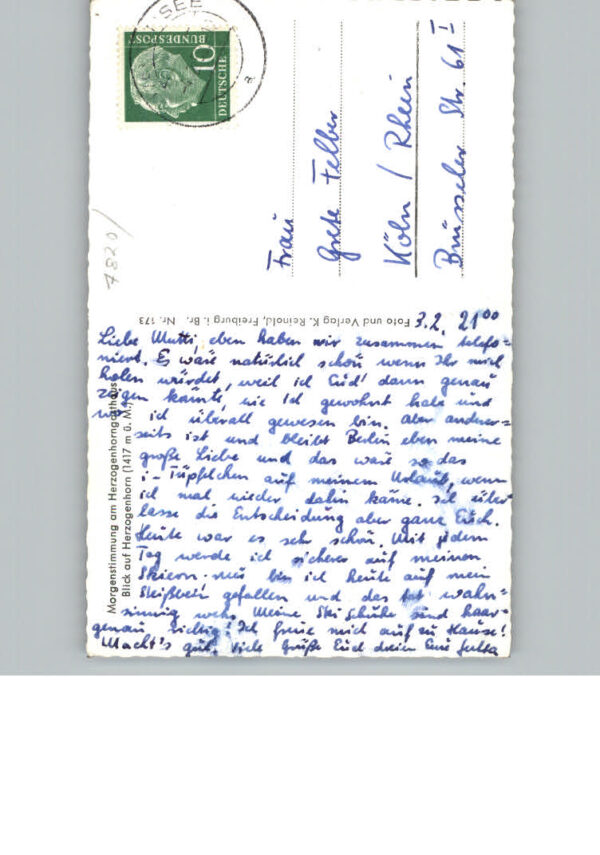 SEE
10
DEUTSCHE
BUNDESPOST
a
7820/
Frau
Grete Felber
Köln / Rhein
Brüsseler Str. 61 I
Foto und Verlag K. Reinold, Freiburg i. Br. Nr. 173
Morgenstimmung am Herzogenhorngasthaus
Blick auf Herzogenhorn (1417 m ü. M.)
3.2. 21⁰⁰
Liebe Mutti, eben haben wir zusammen telefo-
niert. Es wäre natürlich schön wenn Ihr mich
holen würdet, weil ich Euch dann genau
zeigen kannte, wie ich gewohnt habe und
wo ich überall gewesen bin. Aber anderer-
seits ist und bleibt Berlin eben meine
große Liebe und das wäre so das
i-Tüpfelchen auf meinem Urlaub, wenn
ich mal wieder dahin käme. Ich über
lasse die Entscheidung aber ganz Euch.
Heute war es sehr schön. Mit jedem
Tag werde ich sicherer auf meinen
Skiern. nur bin ich heute auf mein
Steißbein gefallen und das tut wahn-
sinnig weh. Meine Ski Schuhe sind haar-
genau richtig! Ich freue mich auf zu Hause!
Macht's gut. viele Grüße Euch allen Eure Jutta